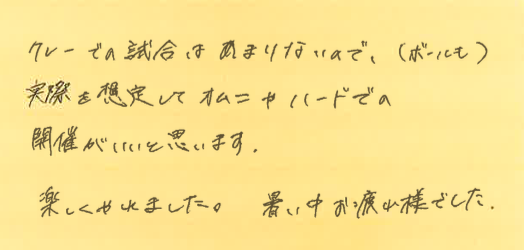 クレーでの試合はあまりないので、(ボールも)
実際を想定してオムニやハードでの
開催がいいと思います.
楽しくやれました。 暑い中お疲れ様でした.